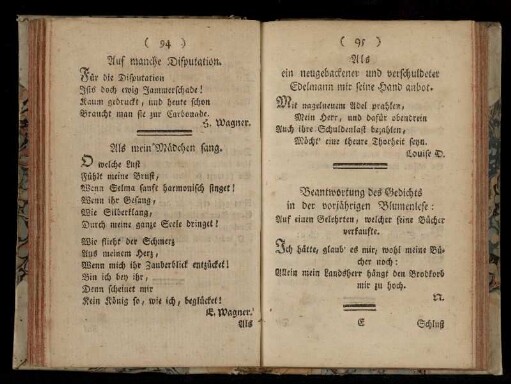 ( 94 )
Auf manche Disputation.
Für die Disputation
Ists doch ewig Jammerschade!
Kaum gedruckt, und heute schon
Braucht man sie zur Carbonade.
H. Wagner.
Als mein Mädchen sang.
O welche Lust
Fühlt meine Brust,
Wenn Selma sanft harmonisch singet!
Wenn ihr Gesang,
Wie Silberklang,
Durch meine ganze Seele dringet!
Wie flieht der Schmerz
Aus meinem Herz,
Wenn mich ihr Zauberblick entzücket!
Bin ich bey ihr,
Denn scheinet mir
Kein König so, wie ich, beglücket!
E. Wagner.
Als
( 95 )
Als
ein neugebackener und verschuldeter
Edelmann mir seine Hand anbot.
Mit nagelneuem Adel prahlen,
Mein Herr, und dafür obendrein
Auch ihre Schuldenlast bezahlen,
Möcht' eine theure Thorheit seyn.
Louise D.
Beantwortung des Gedichts
in der vorjährigen Blumenlese:
Auf einen Gelehrten, welcher seine Bücher
verkaufte.
Ich hätte, glaub' es mir, wohl meine Bü-
cher noch:
Allein mein Landsherr hängt den Brodkorb
mir zu hoch.
N.
E
Schluß